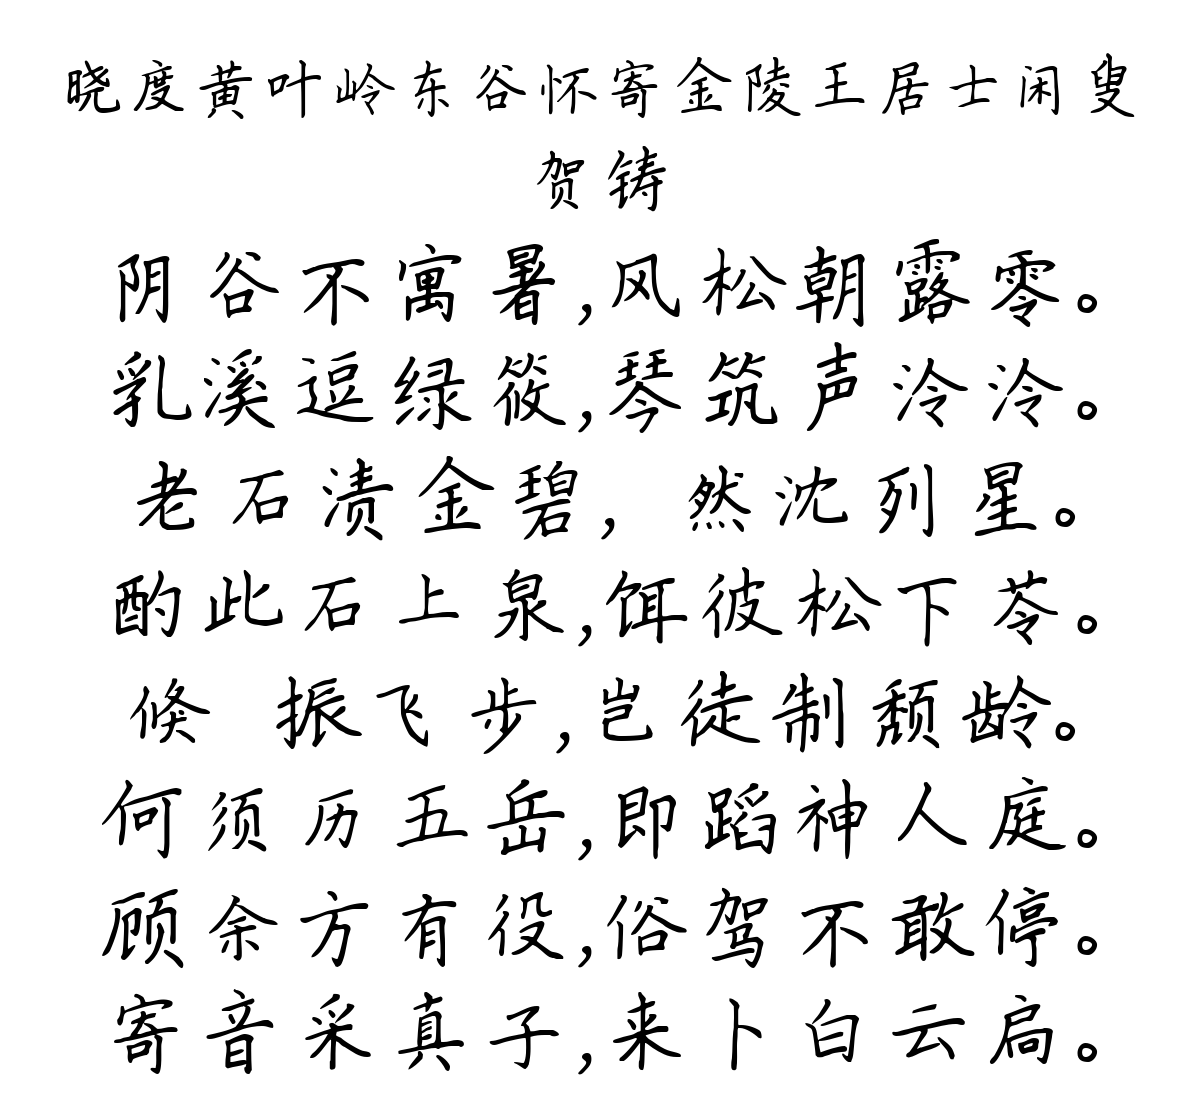 晓度黄叶岭东谷怀寄金陵王居士闲叟
贺铸
阴谷不寓暑,风松朝露零。
乳溪逗绿筱,琴筑声泠泠。
老石渍金碧，然沈列星。
酌此石上泉,饵彼松下苓。
倏 振飞步,岂徒制颓龄。
何须历五岳,即蹈神人庭。
顾余方有役,俗驾不敢停。
寄音采真子,来卜白云扃。